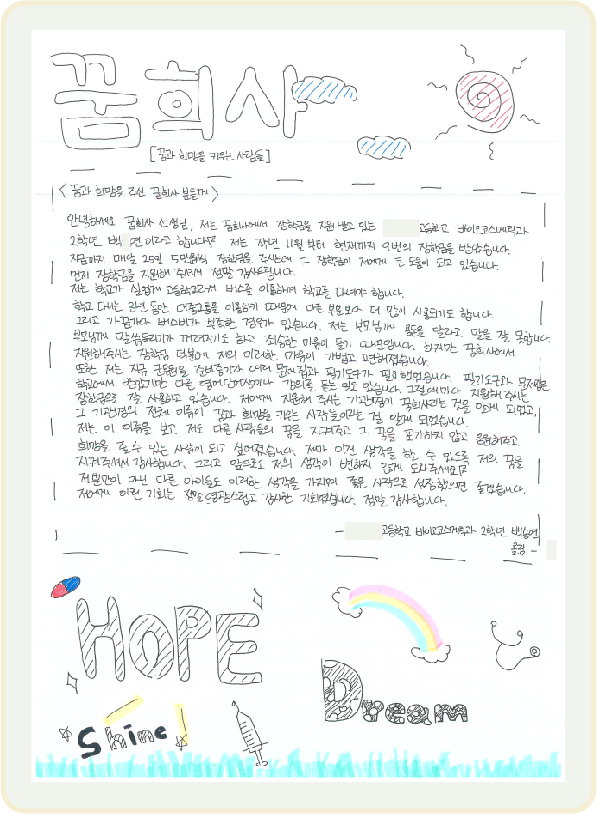 꿈희사
[꿈과 희망을 키우는 사람들]
<꿈과 희망을 주신 꿈희사 분들께>
안녕하세요 꿈희사 선생님, 저는 꿈희사에서 장학금을 지원 받고 있는 고등학교 바이오코스메틱과
2학년 이라고 합니다! 저는 작년 11월부터 현재까지 9번의 장학금을 받았습니다.
지금까지 매월 25일 5만원씩 장학금을 주신 장학금이 저에게 큰 도움이 되고 있습니다.
먼저 장학금을 지원해 주셔서 정말 감사드립니다.
저는 학교가 고등학교라서 버스를 이용하여 학교를 다녀야 합니다.
학교 다니는 동안 대중교통을 이용하기 때문에 다른 부분보다 더 많이 사용되기도 합니다.
그리고 가끔가다 버스비가 부족한 경우가 있습니다. 저는 부모님께 용돈을 달라고 말을 잘 못합니다.
부모님께 말씀드리기가 꺼려지기도 하고 죄송한 마음이 들기 때문입니다. 하지만 꿈희사에서
지원해주시는 장학금 덕분에 저의 이러한 마음이 가볍고 편해졌습니다.
또한 저는 지금 공무원을 준비중이라 여러 문제집과 필기도구가 필요했었습니다. 필기도구와 문제집은
학원에서 다른 강의를 듣는 것도 있습니다. 그럴때마다 지원해 주시는
장학금을 잘 사용하고 있습니다. 저에게 지원해 주시는 기관명이 꿈희사라는 것을 알게 되었고,
그 기관명의 전체 이름이 꿈과 희망을 키우는 사람들이라는 걸 알게 되었습니다.
저는 이 이름을 보고, 저도 다른 사람들의 꿈을 지켜주고 그 꿈을 포기하지 않고 응원해주고
희망을 줄 수 있는 사람이 되고 싶어졌습니다. 제가 이런 생각을 할 수 있도록 저의 꿈을
지켜주셔서 감사합니다. 그리고 앞으로도 저의 생각이 변하지 않게 도와주세요!
저뿐만이 아닌 다른 아이들도 이러한 생각을 가지며 좋은 사람으로 성장했으면 좋겠습니다.
저에게 이런 기회는 정말 영광스럽고 감사한 기회였습니다. 정말 감사합니다.
- 고등학교 바이오코스메틱과 2학년
올림 -
HOPE
Dream
Shine!